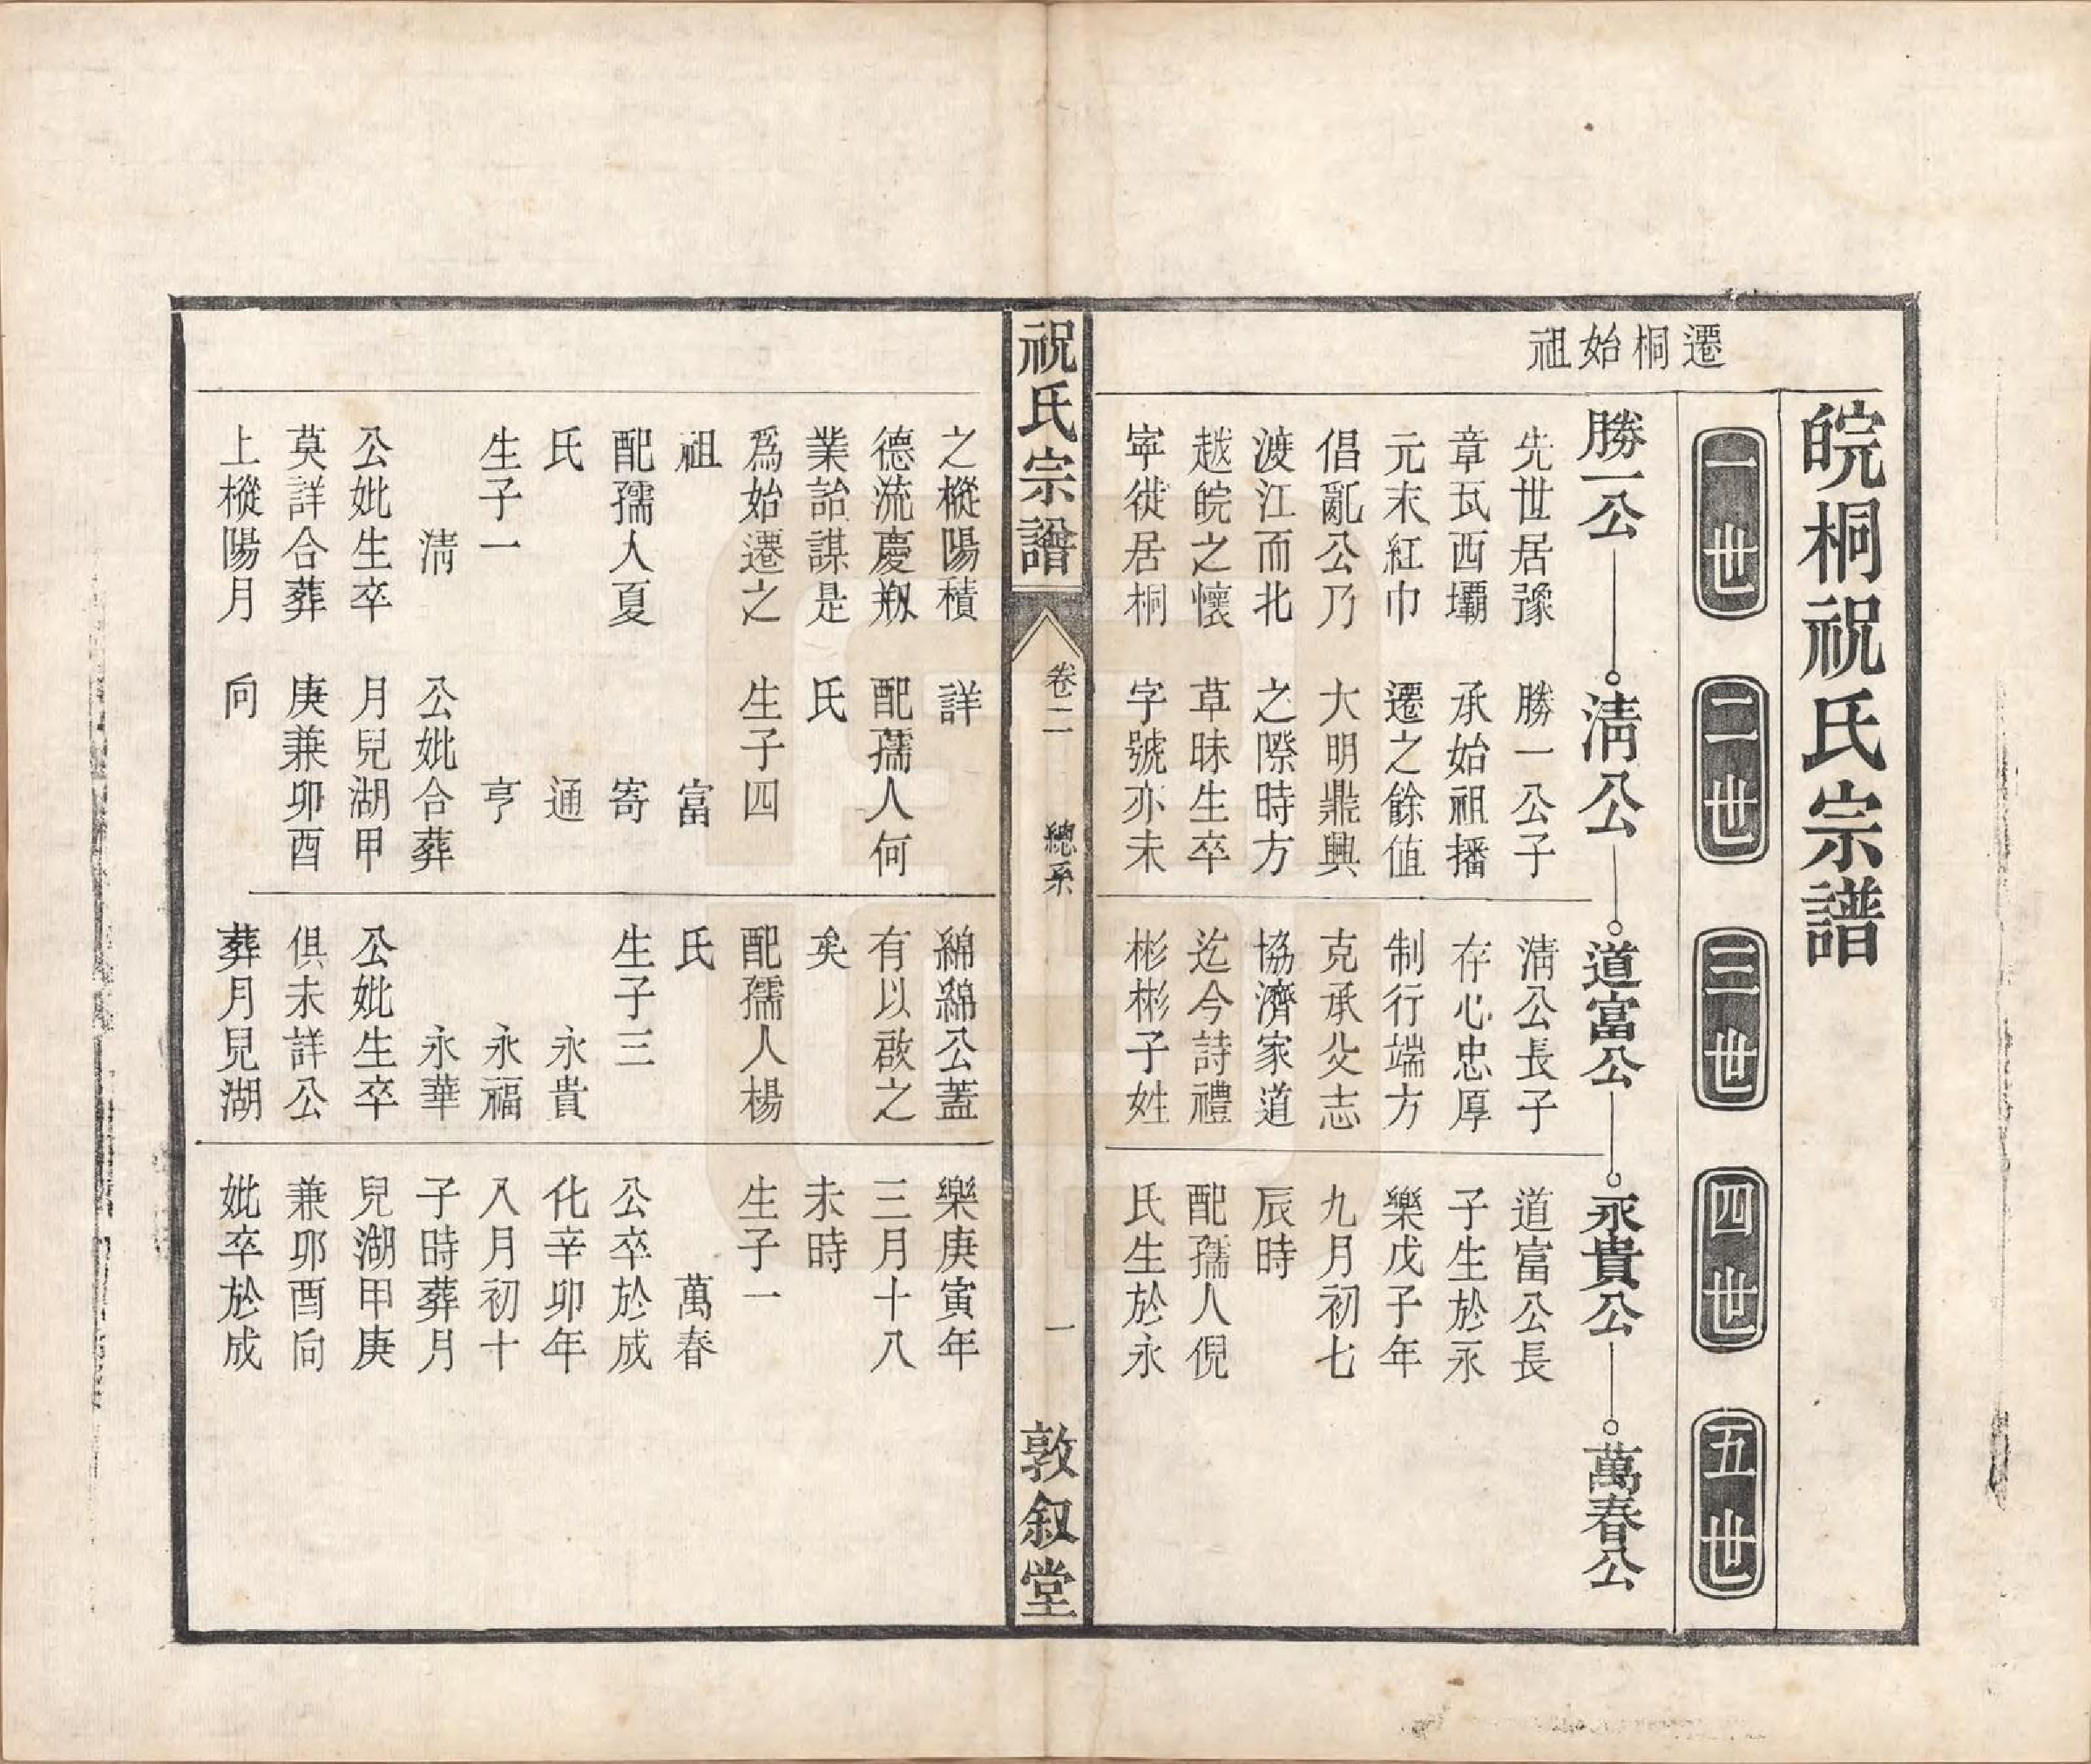 皖桐祝氏宗譜
一世
二世
三世
四世
五世
遷桐始祖
勝一公
清公
道富公
永貴公
萬春公
先世居豫
章瓦西壩
元末紅巾
倡亂公乃
渡江而北
越皖之懷
寧徙居桐
勝一公子
承始祖播
遷之餘值
大明鼎興
之際時方
草昧生卒
字號亦未
清公長子
存心忠厚
制行端方
克承父志
協濟家道
迄今詩禮
彬彬子姓
道富公長
子生於永
樂戊子年
九月初七
辰時
配孺人倪
氏生於永
祝氏宗譜
卷二
總系
一
敦叙堂
之樅陽積
德流慶
業詒謀是
爲始遷之
祖
配孺人夏
氏
生子一
清
公妣生卒
莫詳合葬
上樅陽月
詳
配孺人何
氏
生子四
富
寄
通
亨
公妣合葬
月兒湖甲
庚兼卯酉
向
綿綿公蓋
有以啟之
矣
配孺人楊
氏
生子三
永貴
永福
永華
公妣生卒
俱未詳公
葬月兒湖
樂庚寅年
三月十八
未時
生子一
萬春
公卒於成
化辛卯年
八月初十
子時葬月
兒湖甲庚
兼卯酉向
妣卒於成